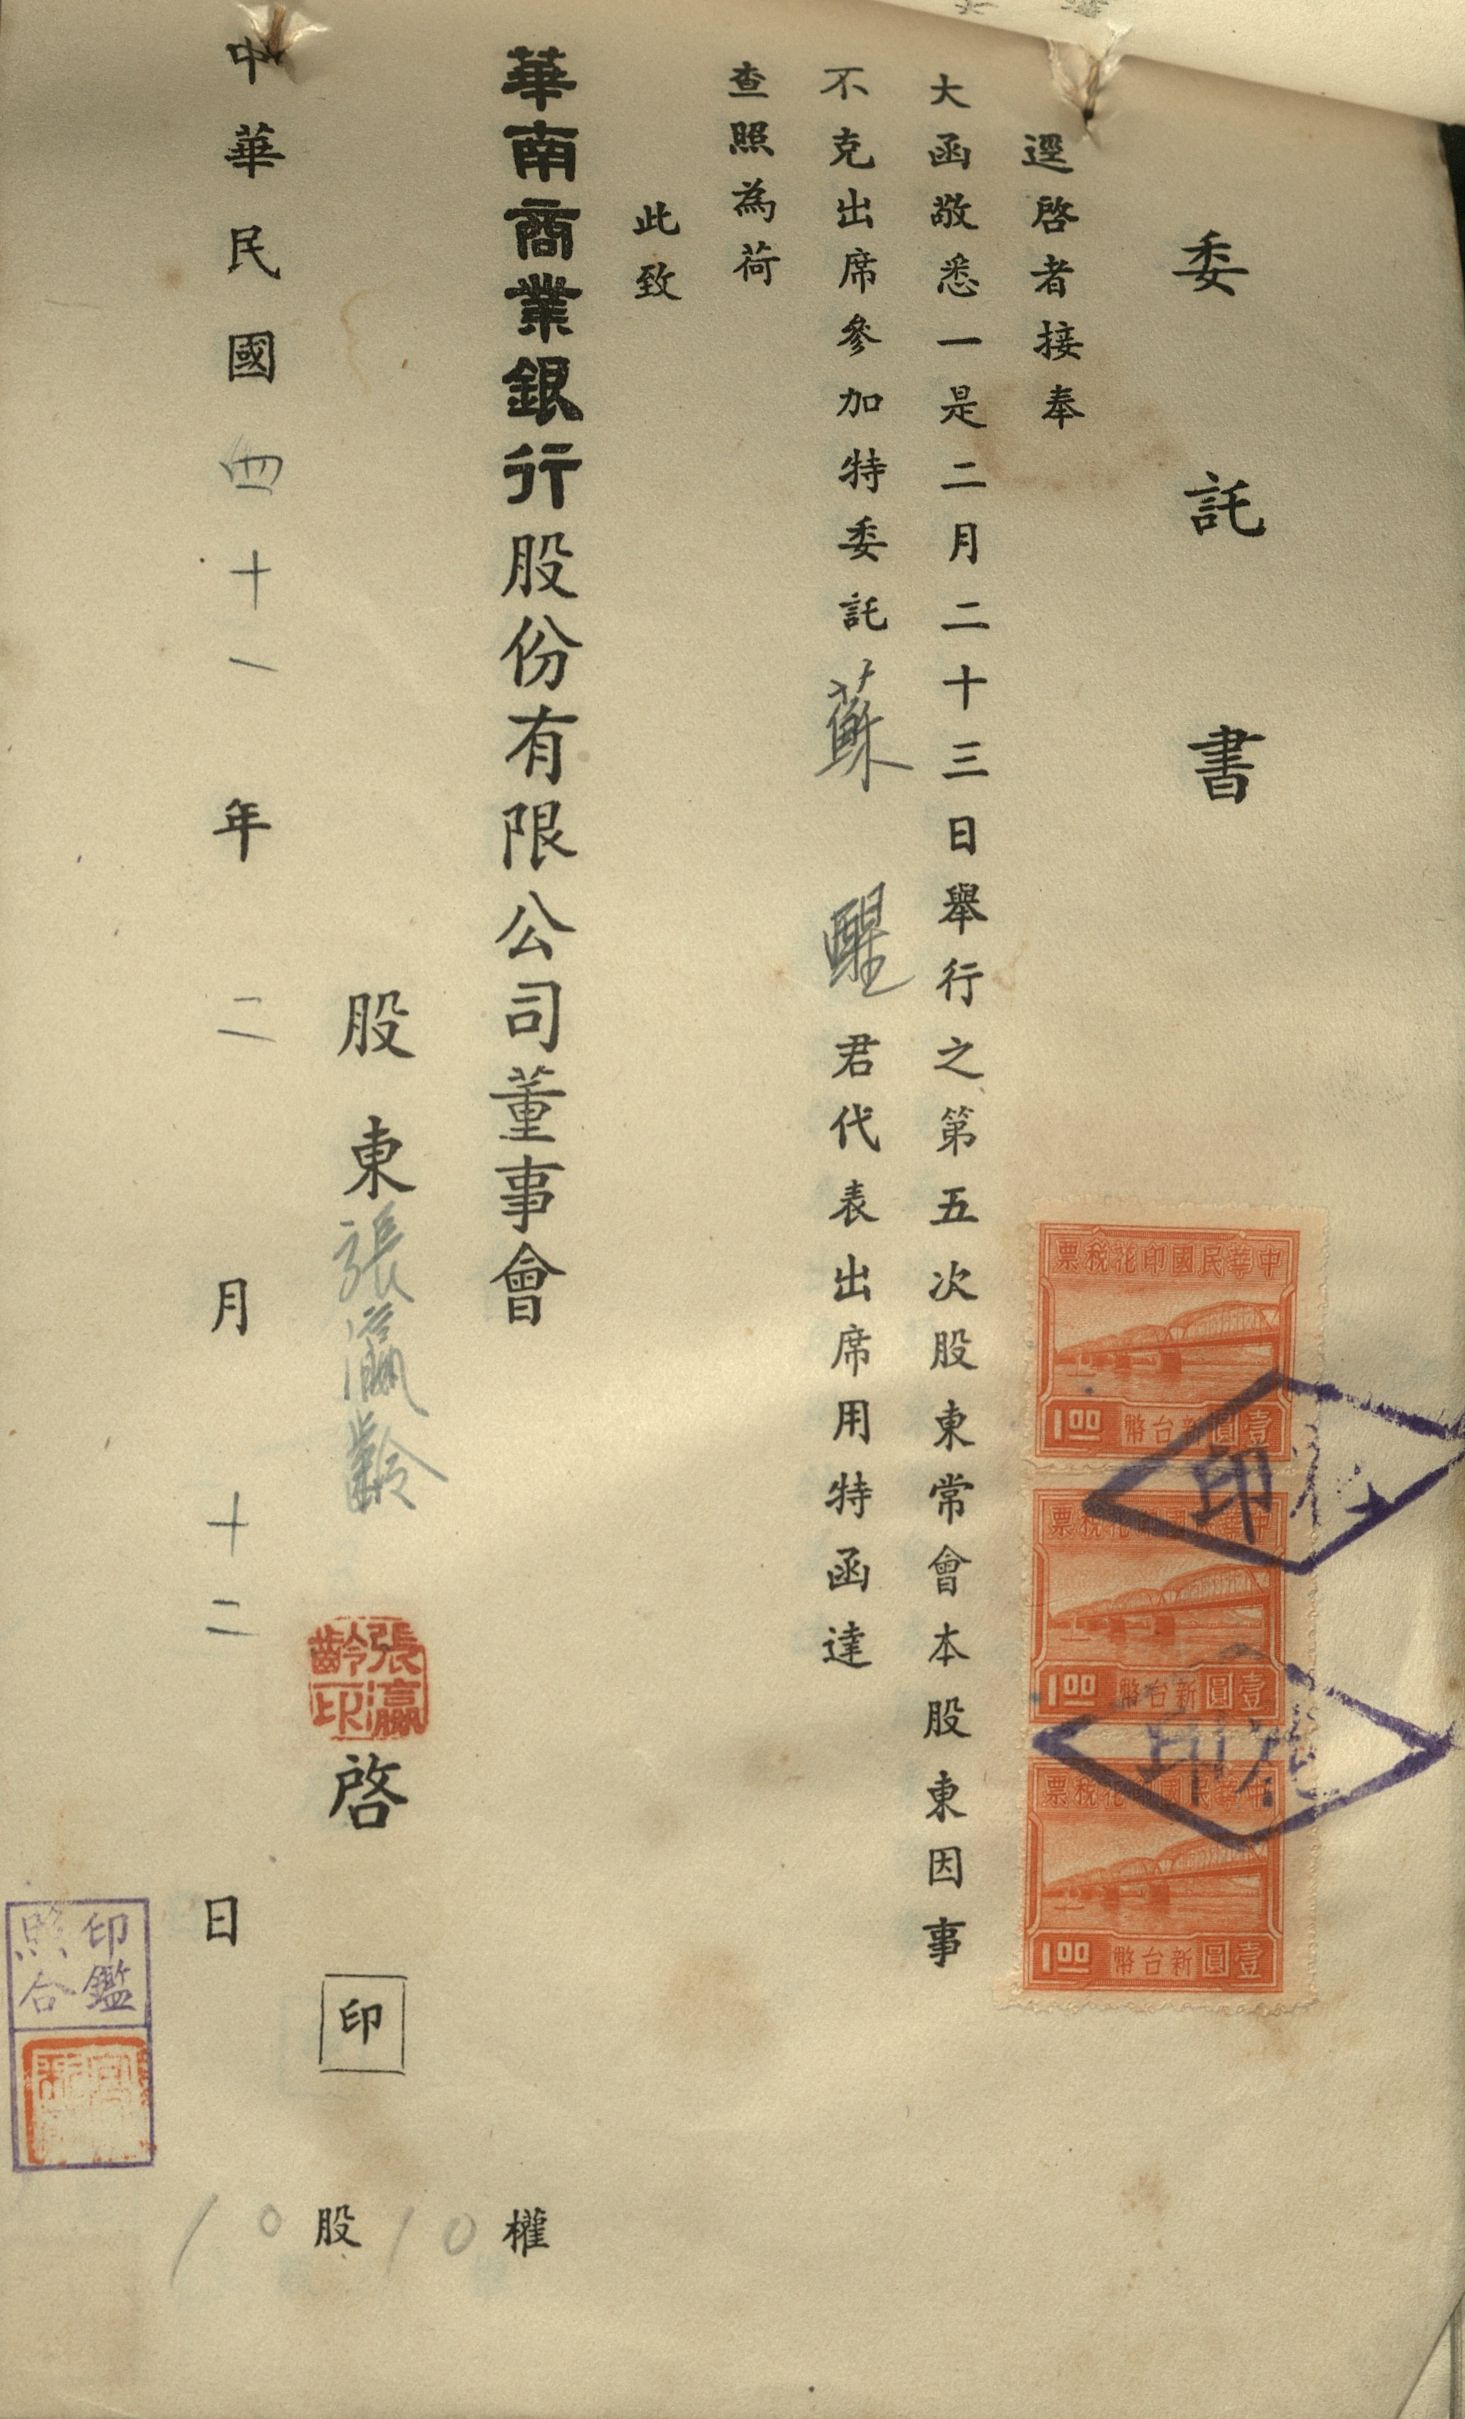 委託書
逕啓者接奉
大函敬悉一是二月二十三日舉行之第五次股東常會本股東因事
不克出席參加特委託蘇醒君代表出席用特函達
查照為荷
此致
華南商業銀行股份有限公司董事會
股東張瀛齡啓
張瀛齡印
印
中華民國四十一年二月十二日
10股10權
印鑑
照合
票稅花印國民華中
1.00 幣台新圓壹
票稅花印國民華中
1.00 幣台新圓壹
票稅花印國民華中
1.00 幣台新圓壹
印花
印花